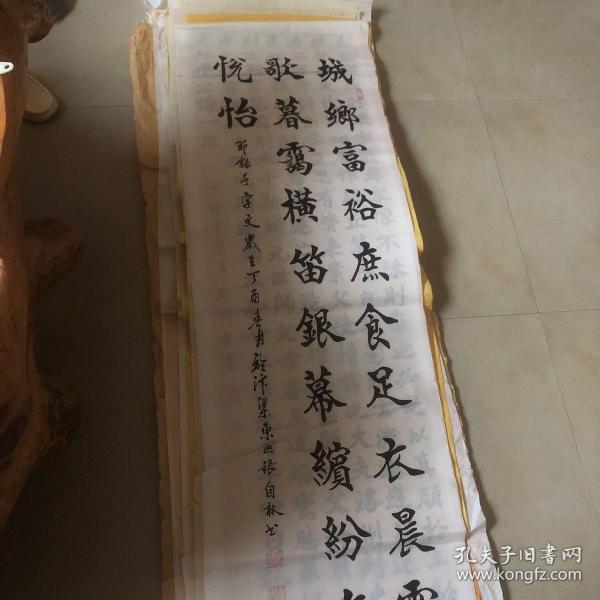 城鄉富裕庶食足衣晨
歌暮靄橫笛銀幕繽紛
悦怡
節錄千字文歲在丁酉春月於汴梁東區張自林书
孔夫子旧书网
www.kongfz.com